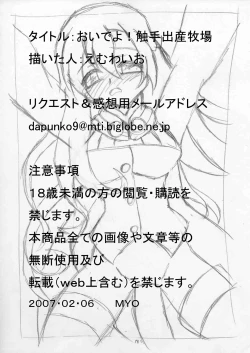 タイトル：おいでよ！触手出産牧場
描いた人：えむわいお
リクエスト＆感想用メールアドレス
dapunko9@mti.biglobe.ne.jp
注意事項
１８歳未満の方の閲覧・購読を
禁じます。
本商品全ての画像や文章等の
無断使用及び
転載（web上含む）を禁じます。
２００７・０２・０６　ＭＹＯ